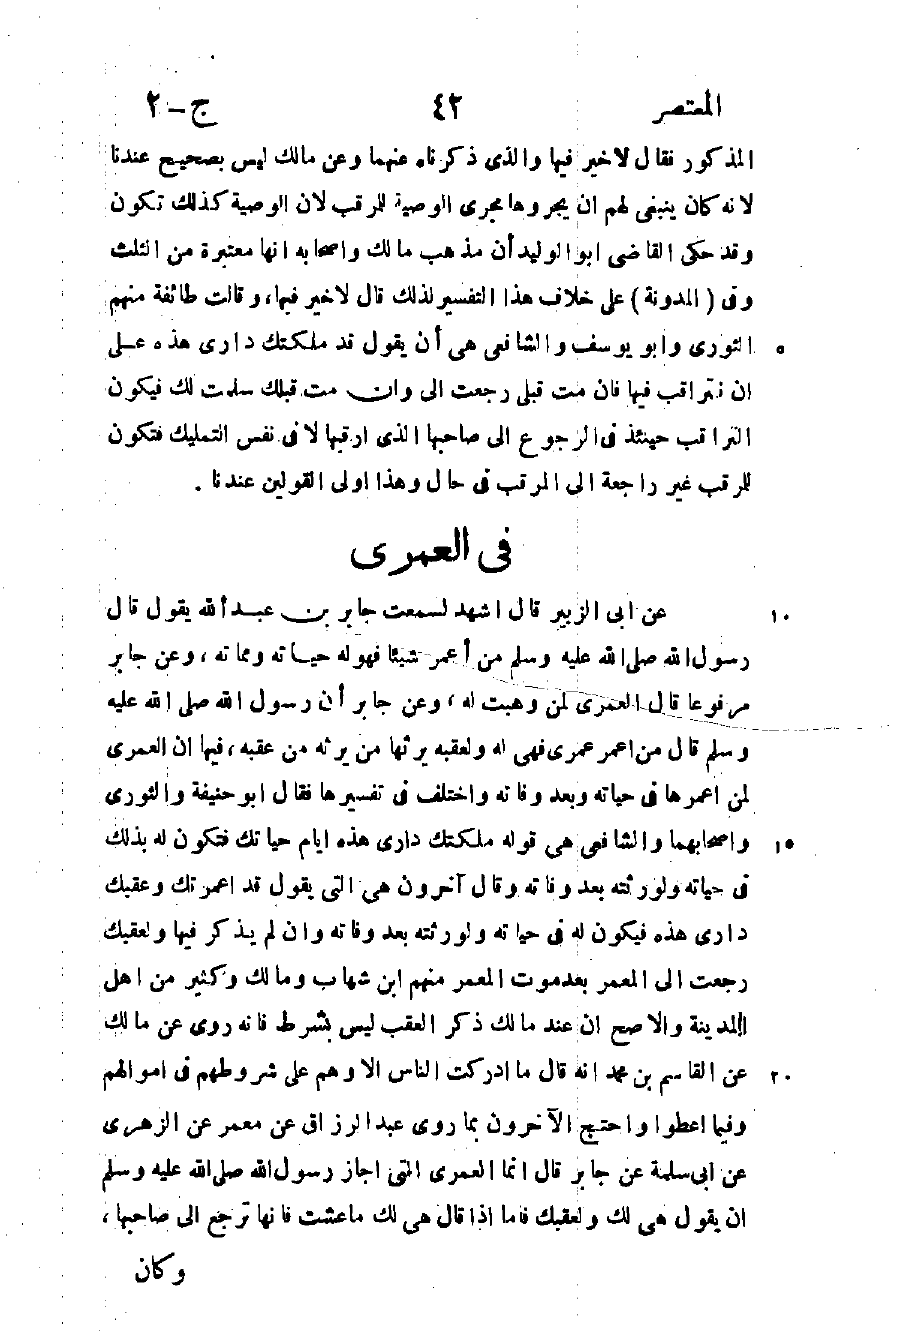 المعتصر ٤٢ ج-٢
المذكور فقال لاخير فيها والذى ذكرناه عنهما وعن مالك ليس بصحيح عندنا
لانه كان ينبغى لهم ان يجروها مجرى الوصية للرقب لان الوصية كذلك تكون
وقد حكى القاضى ابو الوليد أن مذهب مالك واصحابه انها معتبرة من الثلث
وفى (المدونة) على خلاف هذا التفسير لذلك قال لاخير فيها، وقالت طائفة منهم
٥ الثورى وابو يوسف والشافعى هى أن يقول قد ملكتك دارى هذه على
ان نتراقب فيها فان مت قبلى رجعت الى وان مت قبلك سلمت لك فيكون
التراقب حينئذ فى الرجوع الى صاحبها الذى ارقبها لا فى نفس التمليك فتكون
للرقب غير راجعة الى المرقب فى حال وهذا اولى القولين عندنا .
فى العمرى
١٠ عن ابى الزبير قال اشهد لسمعت جابر بن عبد الله يقول قال
رسول الله صلى الله عليه وسلم من أعمر شيئا فهو له حياته ومماته، وعن جابر
مرفوعا قال العمرى لمن وهبت له، وعن جابر أن رسول الله صلى الله عليه
وسلم قال من اعمر عمرى فهى له ولعقبه يرثها من يرثه من عقبه، فيها ان العمرى
لمن اعمرها فى حياته وبعد وفاته واختلف فى تفسيرها فقال ابو حنيفة والثورى
١٥ واصحابهما والشافعى هى قوله ملكتك دارى هذه ايام حياتك فتكون له بذلك
فى حياته ولورثته بعد وفاته وقال آخرون هى التى يقول قد اعمرتك وعقبك
دارى هذه فيكون له فى حياته ولورثته بعد وفاته وان لم يذكر فيها ولعقبك
رجعت الى المعمر بعد موت المعمر منهم ابن شهاب ومالك وكثير من اهل
المدينة والاصح ان عند مالك ذكر العقب ليس بشرط فانه روى عن مالك
٢٠ عن القاسم بن محمد انه قال ما ادركت الناس الا وهم على شروطهم فى اموالهم
وفيما اعطوا واحتج الآخرون بما روى عبد الرزاق عن معمر عن الزهرى
عن ابى سلمة عن جابر قال انما العمرى التى اجاز رسول الله صلى الله عليه وسلم
ان يقول هى لك ولعقبك فاما اذا قال هى لك ماعشت فانها ترجع الى صاحبها،
وكان